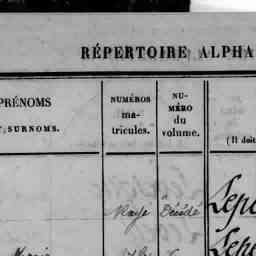 RÉPERTOIRE ALPHA
PRÉNOMS
SURNOMS.
NUMÉROS
ma-
tricules.
NU-
MÉRO
du
volume.
(Il doit
Décédé
Lepe
Lepe